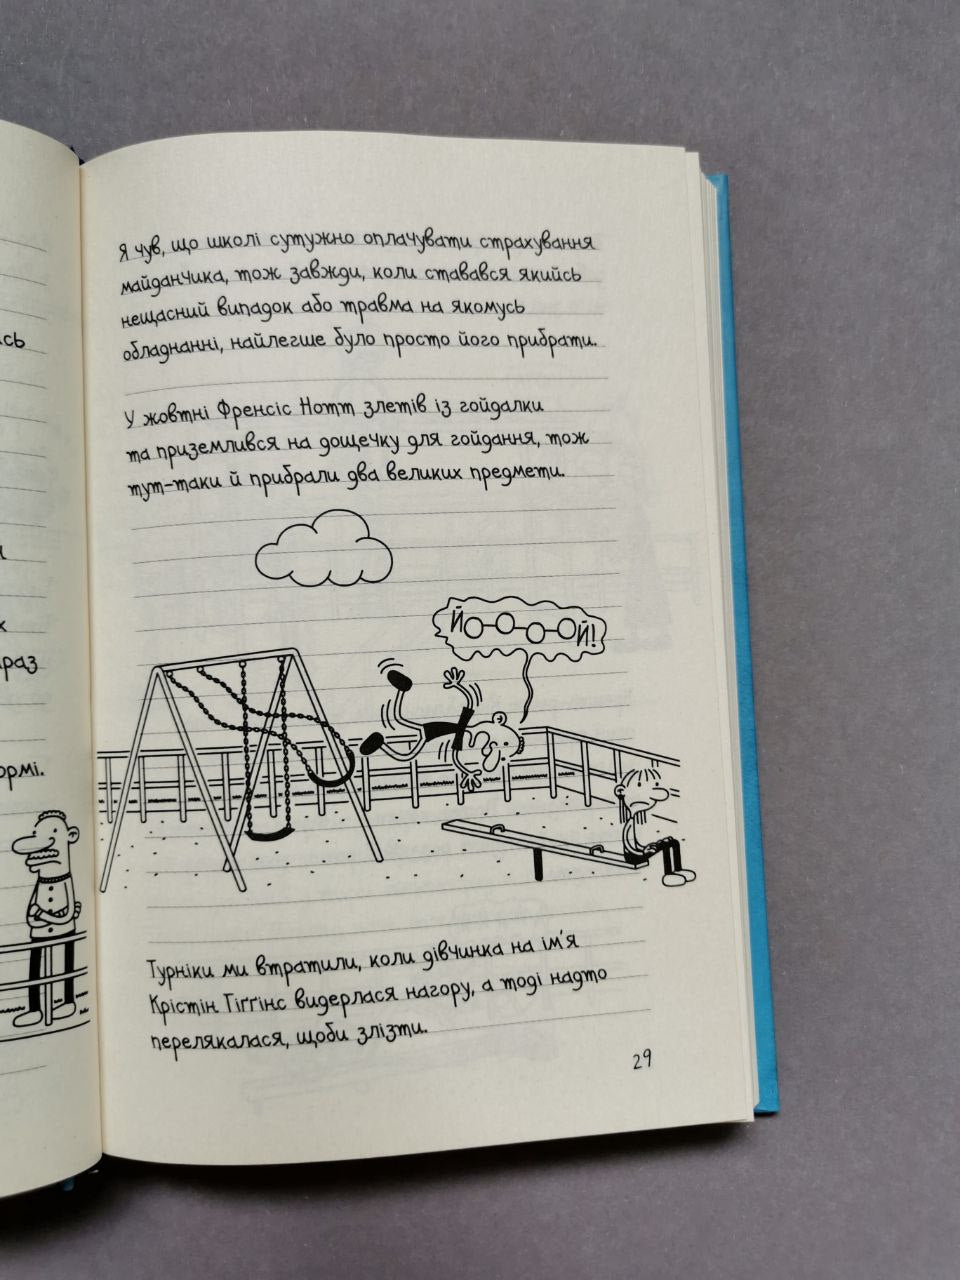 ормі.
Я чув, що школі сутужно оплачувати страхування
майданчика, тож завжди, коли ставався якийсь
нещасний випадок або травма на якомусь
обладнанні, найлегше було просто його прибрати.
У жовтні Френсіс Нотт злетів із гойдалки
та приземлився на дощечку для гойдання, тож
тут-таки й прибрали два великих предмети.
Йоооой!
Турніки ми втратили, коли дівчинка на ім'я
Крістін Гіґґінс видерлася нагору, а тоді надто
перелякалася, щоби злізти.
29